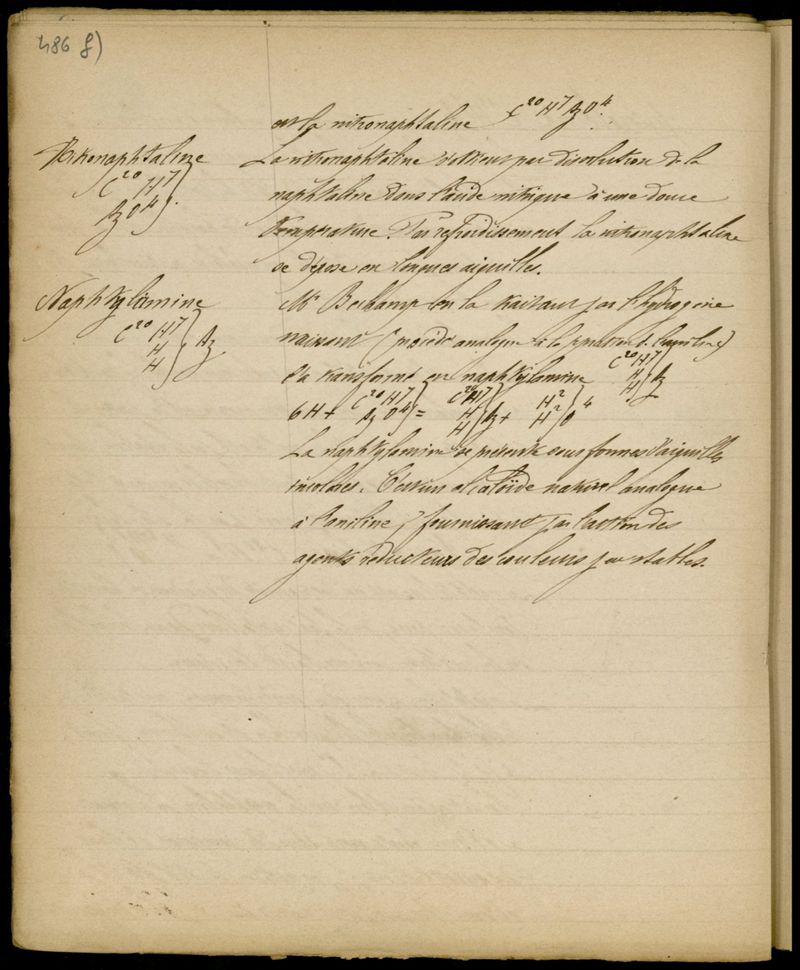 486 g)
est la nitronaphtaline C²⁰H⁷AzO⁴.
Nitronaphtaline
C²⁰H⁷
AzO⁴ } .
La nitronaphtaline s'obtient par dissolution de la
naphtaline dans l'acide nitrique à une douce
température. Par refroidissement la nitronaphtaline
se dépose en longues aiguilles.
Naphtylamine
C²⁰H⁷
H
H } Az
Mr Bechamp en la traitant par l'hydrogène
naissant (procédé analogue à la de l'aniline)
l'a transformé en naphtylamine C²⁰H⁷ H H } Az
6H + C²⁰H⁷ AzO⁴ } = C²⁰H⁷ H H } Az + H² H² } O⁴
La naphtylamine se présente sous formes d'aiguilles
incolores. C'est un alcaloïde naturel analogue
à l'aniline, fournissant par l'action des
agents réducteurs des couleurs peu stables.